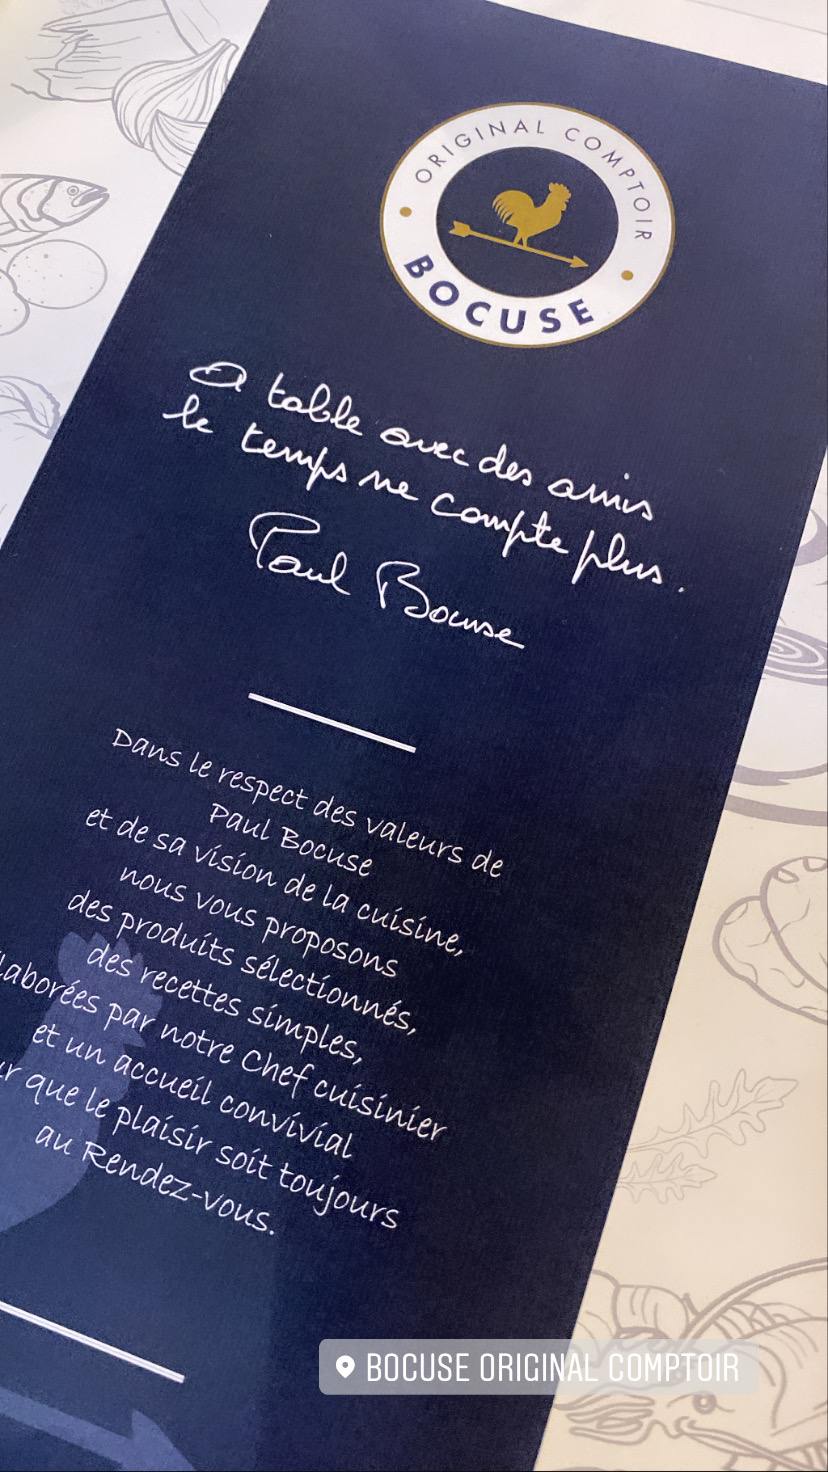 ORIGINAL COMPTOIR
BOCUSE
a table avec des amis
le temps ne compte plus.
Paul Bocuse
Dans le respect des valeurs de
Paul Bocuse
et de sa vision de la cuisine,
nous vous proposons
des produits sélectionnés,
des recettes simples,
laborées par notre Chef cuisinier
et un accueil convivial
ur que le plaisir soit toujours
au Rendez-vous.
BOCUSE ORIGINAL COMPTOIR